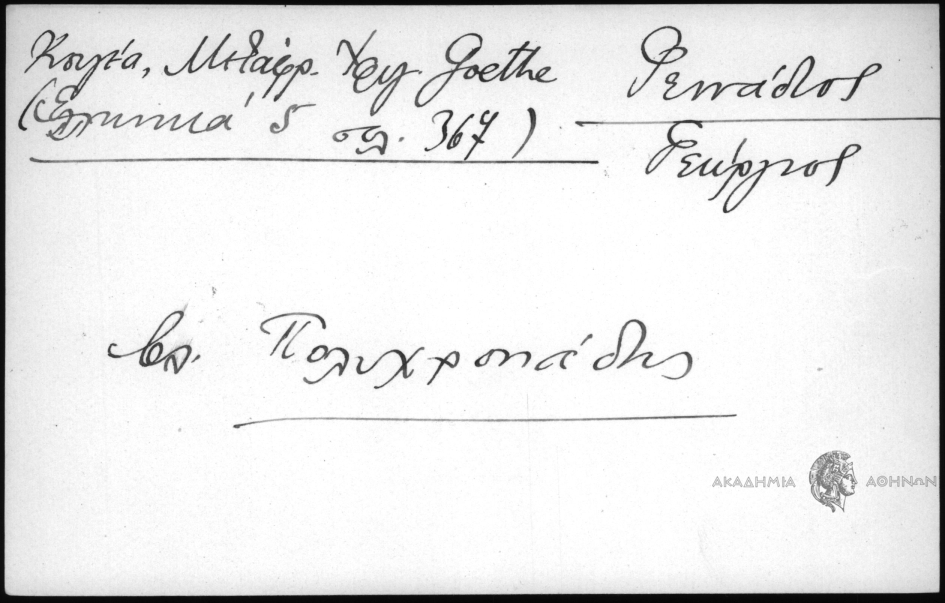 Κουγέα, Μετάφρ. Ἰφιγ. Goethe
(Ἑλληνικά 5 σελ. 367)
Γεννάδιος
Γεώργιος
βλ. Πολυχρονιάδης
ΑΚΑΔΗΜΙΑ ΑΘΗΝΩΝ